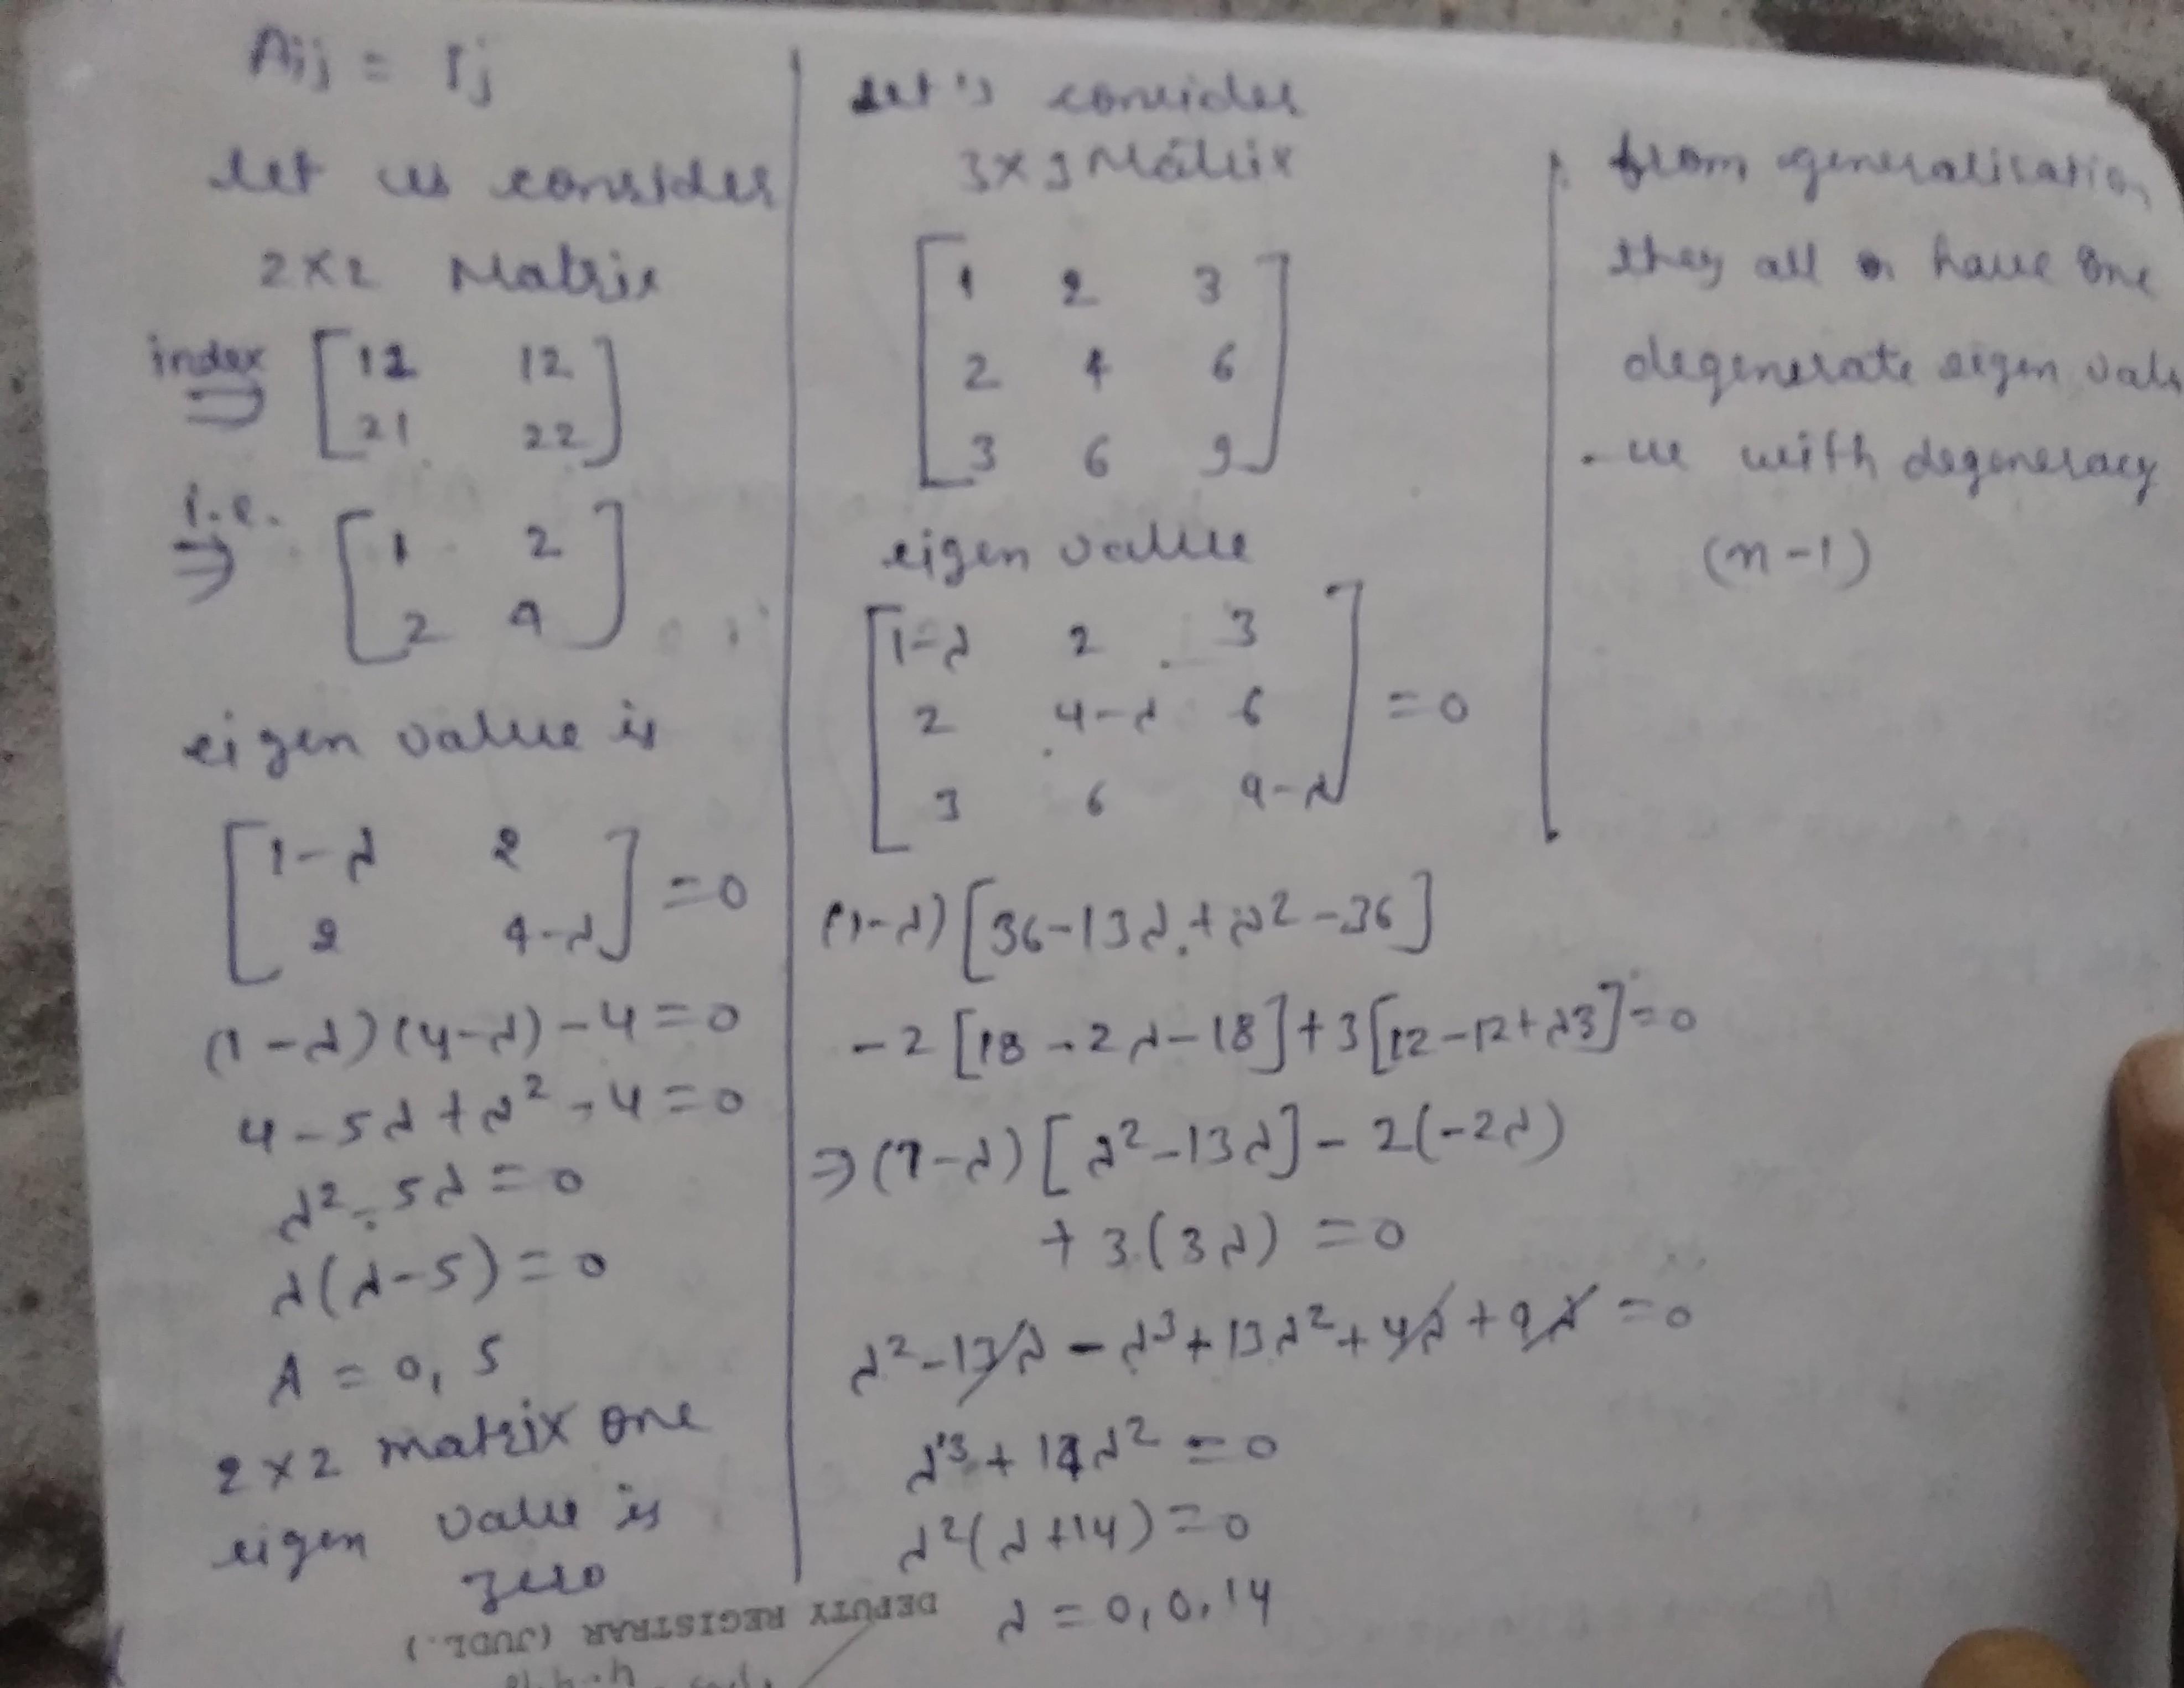 Aij = Ij
let us consider
2×2 Matrix
index ⇒ [12 12
21 22]
i.e. ⇒ [1 2
2 4]
eigen value is
[1-λ 2
2 4-λ] = 0
(1-λ)(4-λ)-4=0
4-5λ+λ²-4=0
λ²-5λ=0
λ(λ-5)=0
λ = 0, 5
2×2 matrix one
eigen value is
zero
Let's consider
3×3 Matrix
[1 2 3
2 4 6
3 6 9]
eigen value
[1-λ 2 3
2 4-λ 6
3 6 9-λ] = 0
(1-λ)[36-13λ+λ²-36]
-2[18-2λ-18]+3[12-12+λ3]=0
⇒(1-λ)[λ²-13λ]-2(-2λ)
+3.(3λ) = 0
λ²-13λ-λ³+13λ²+4λ+9λ=0
λ³+14λ²=0
λ²(λ+14)=0
λ = 0, 0, 14
from generalisation
they all have one
degenerate eigen val
-ue with degeneracy
(n-1)
DEPUTY REGISTRAR (JUDL.)